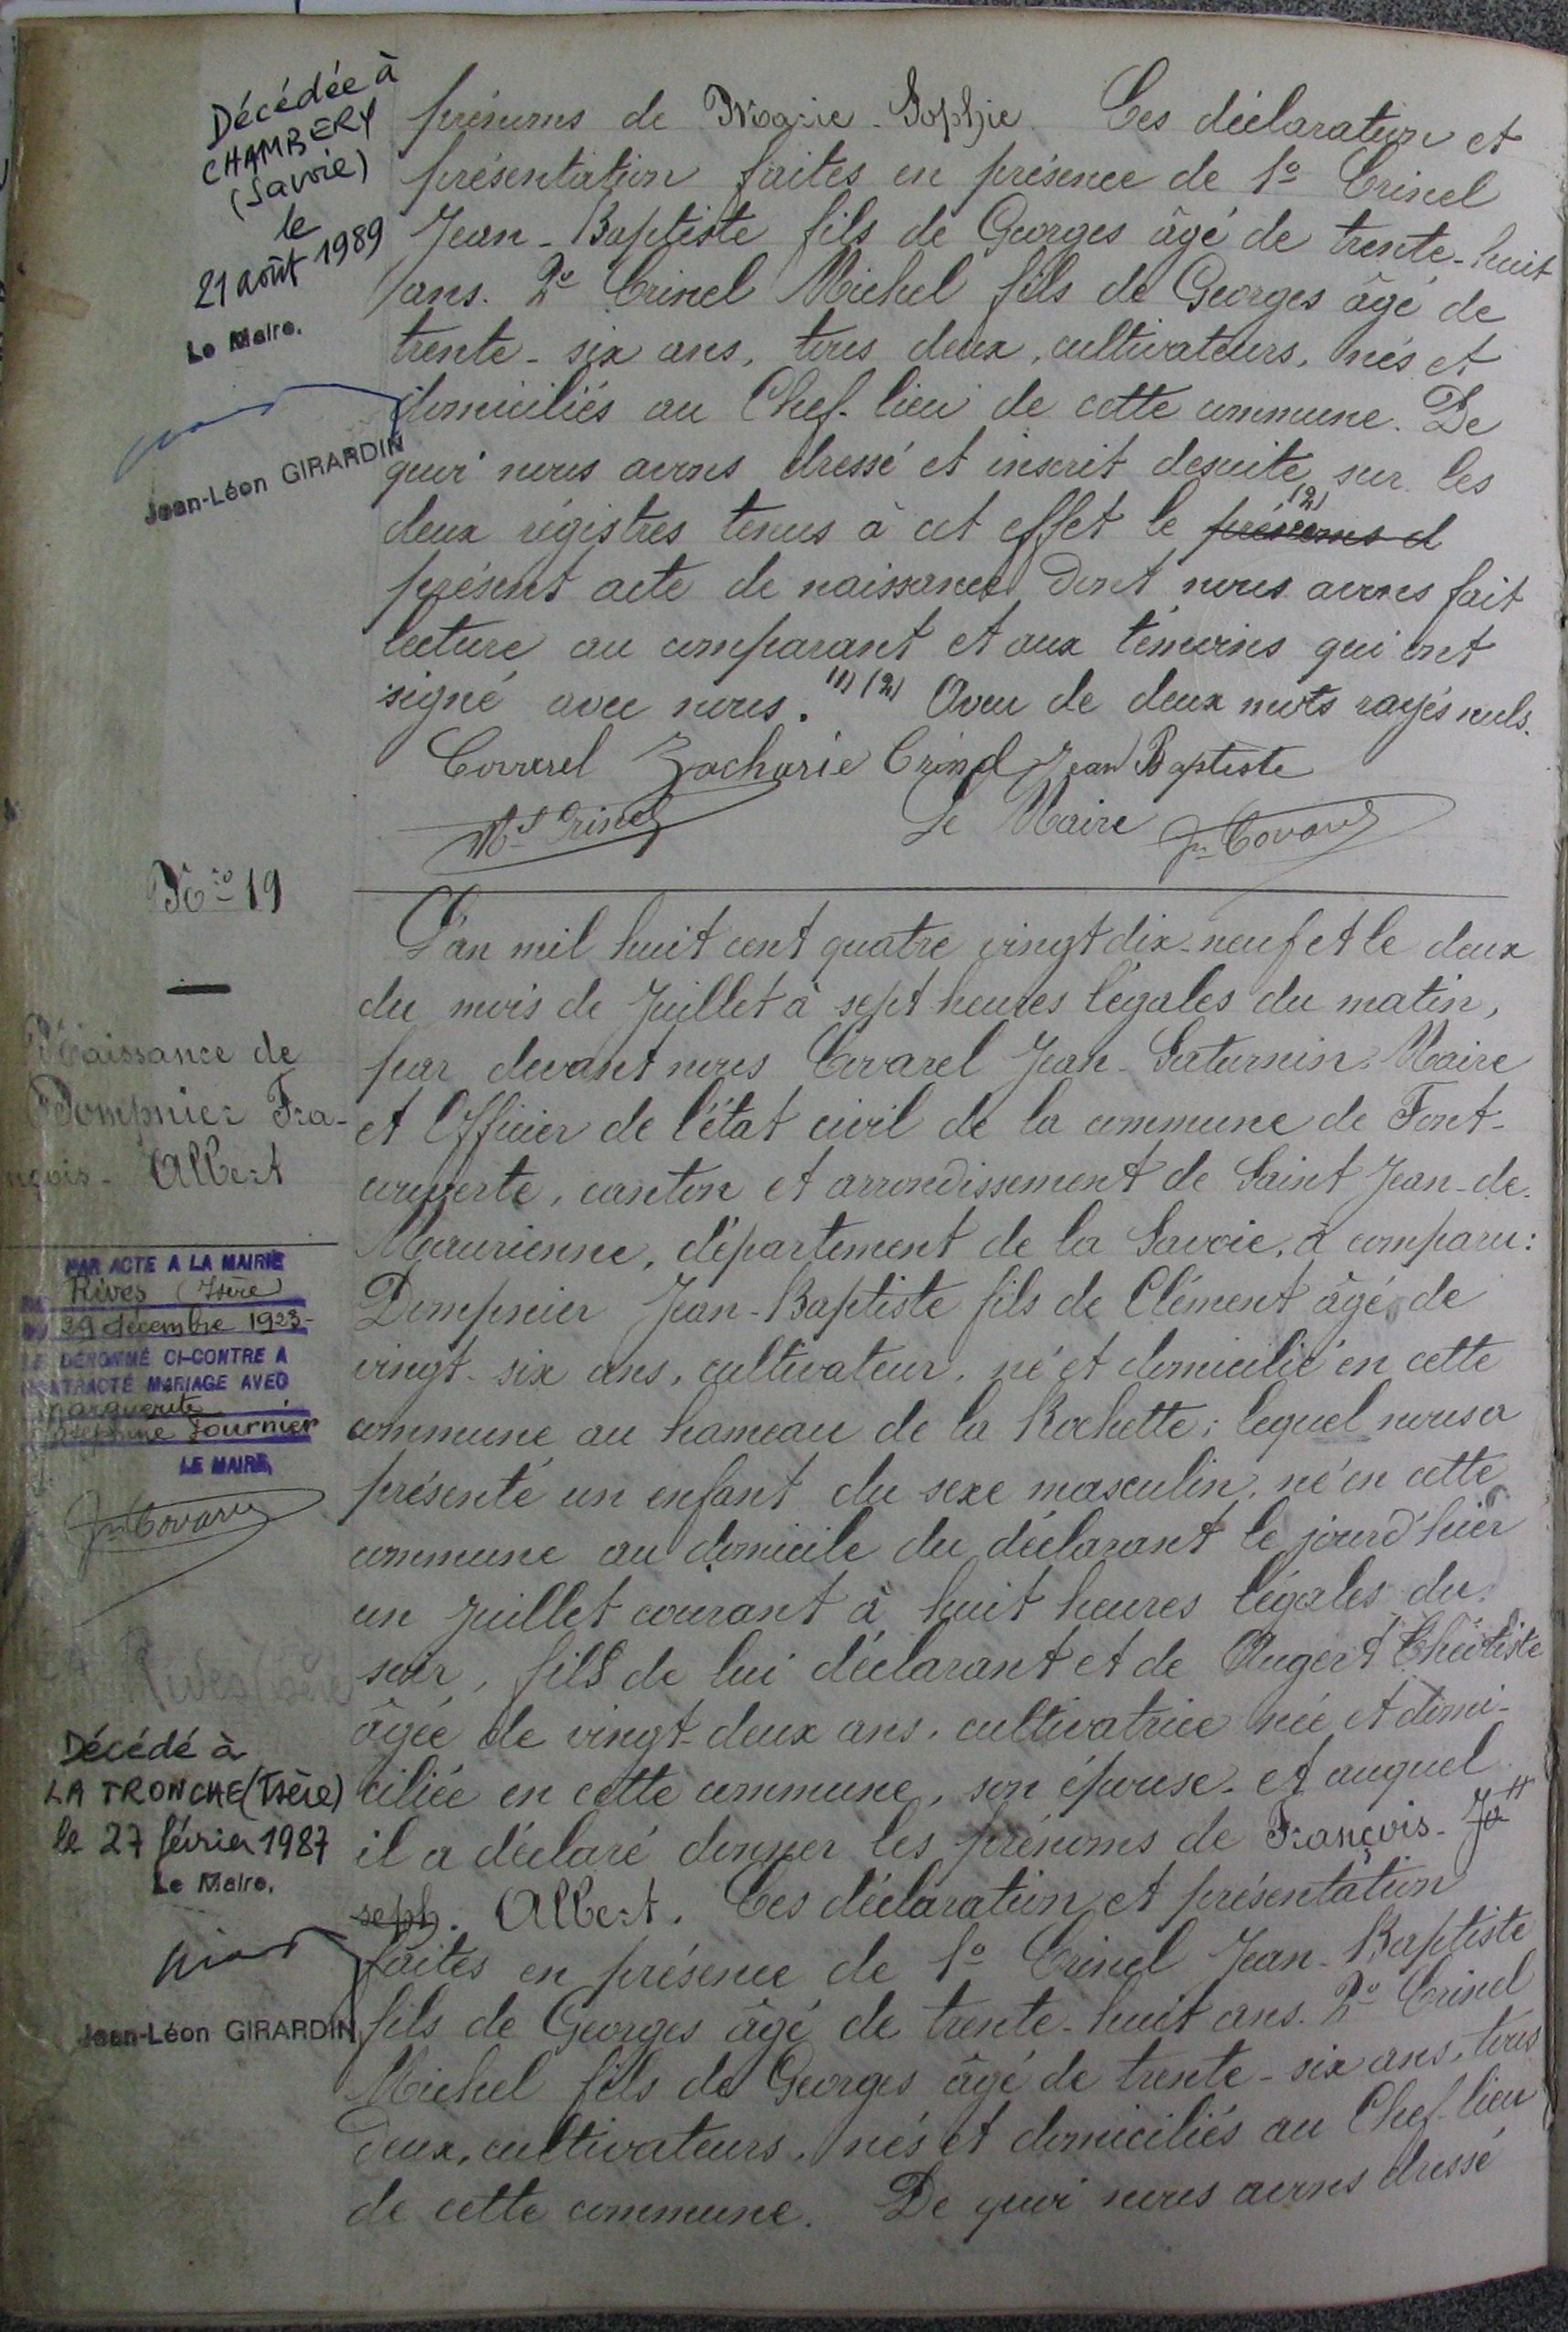 Décédée à
CHAMBERY
(Savoie)
le
21 août 1989
Le Maire.
Jean-Léon GIRARDIN
prénoms de Marie-Sophie. Ces déclaration et
présentation faites en présence de 1º Crinel
Jean-Baptiste fils de Georges âgé de trente-huit
ans. 2º Crinel Michel fils de Georges âgé de
trente-six ans, tous deux, cultivateurs, nés et
domiciliés au Chef-lieu de cette commune. De
quoi nous avons dressé et inscrit desuite sur les
deux régistres tenus à cet effet le prénoms d (2)
présent acte de naissance dont nous avons fait
lecture au comparant et aux témoins qui ont
signé avec nous. (1) (2) Aveu de deux mots rayés nuls.
Covarel Zacharie Crinel Jean Baptiste
Mel Crinel Le Maire Jn Covarel
Nro 19
Naissance de
Dompnier Fra-
nçois-Albert
PAR ACTE A LA MAIRIE
Rives (Isère)
29 décembre 1923-
LE DÉNOMMÉ CI-CONTRE A
CONTRACTÉ MARIAGE AVEC
Marguerite
Joséphine Fournier
LE MAIRE,
Jn Covarel
Rives (Isère)
Décédé à
LA TRONCHE (Isère)
le 27 février 1987
Le Maire.
Jean-Léon GIRARDIN
L'an mil huit cent quatre vingt dix-neuf et le deux
du mois de Juillet à sept heures légales du matin,
par devant nous Covarel Jean-Saturnin, Maire
et Officier de l'état civil de la commune de Font-
couverte, canton et arrondissement de Saint Jean-de-
Maurienne, département de la Savoie, a comparu:
Dompnier Jean-Baptiste fils de Clément âgé de
vingt-six ans, cultivateur, né et domicilié en cette
commune au hameau de la Rochette; lequel nous a
présenté un enfant du sexe masculin, né en cette
commune au domicile du déclarant le jourd'hier
un Juillet courant à huit heures légales du
soir, fils de lui déclarant et de Augert Théotiste
âgée de vingt-deux ans, cultivatrice née et domi-
ciliée en cette commune, son épouse. et auquel
il a déclaré donner les prénoms de François-Jo
seph. Albert. Ces déclaration et présentation
faites en présence de 1º Crinel Jean-Baptiste
fils de Georges âgé de trente-huit ans. 2º Crinel
Michel fils de Georges âgé de trente-six ans, tous
deux, cultivateurs, nés et domiciliés au Chef-lieu
de cette commune. De quoi nous avons dressé